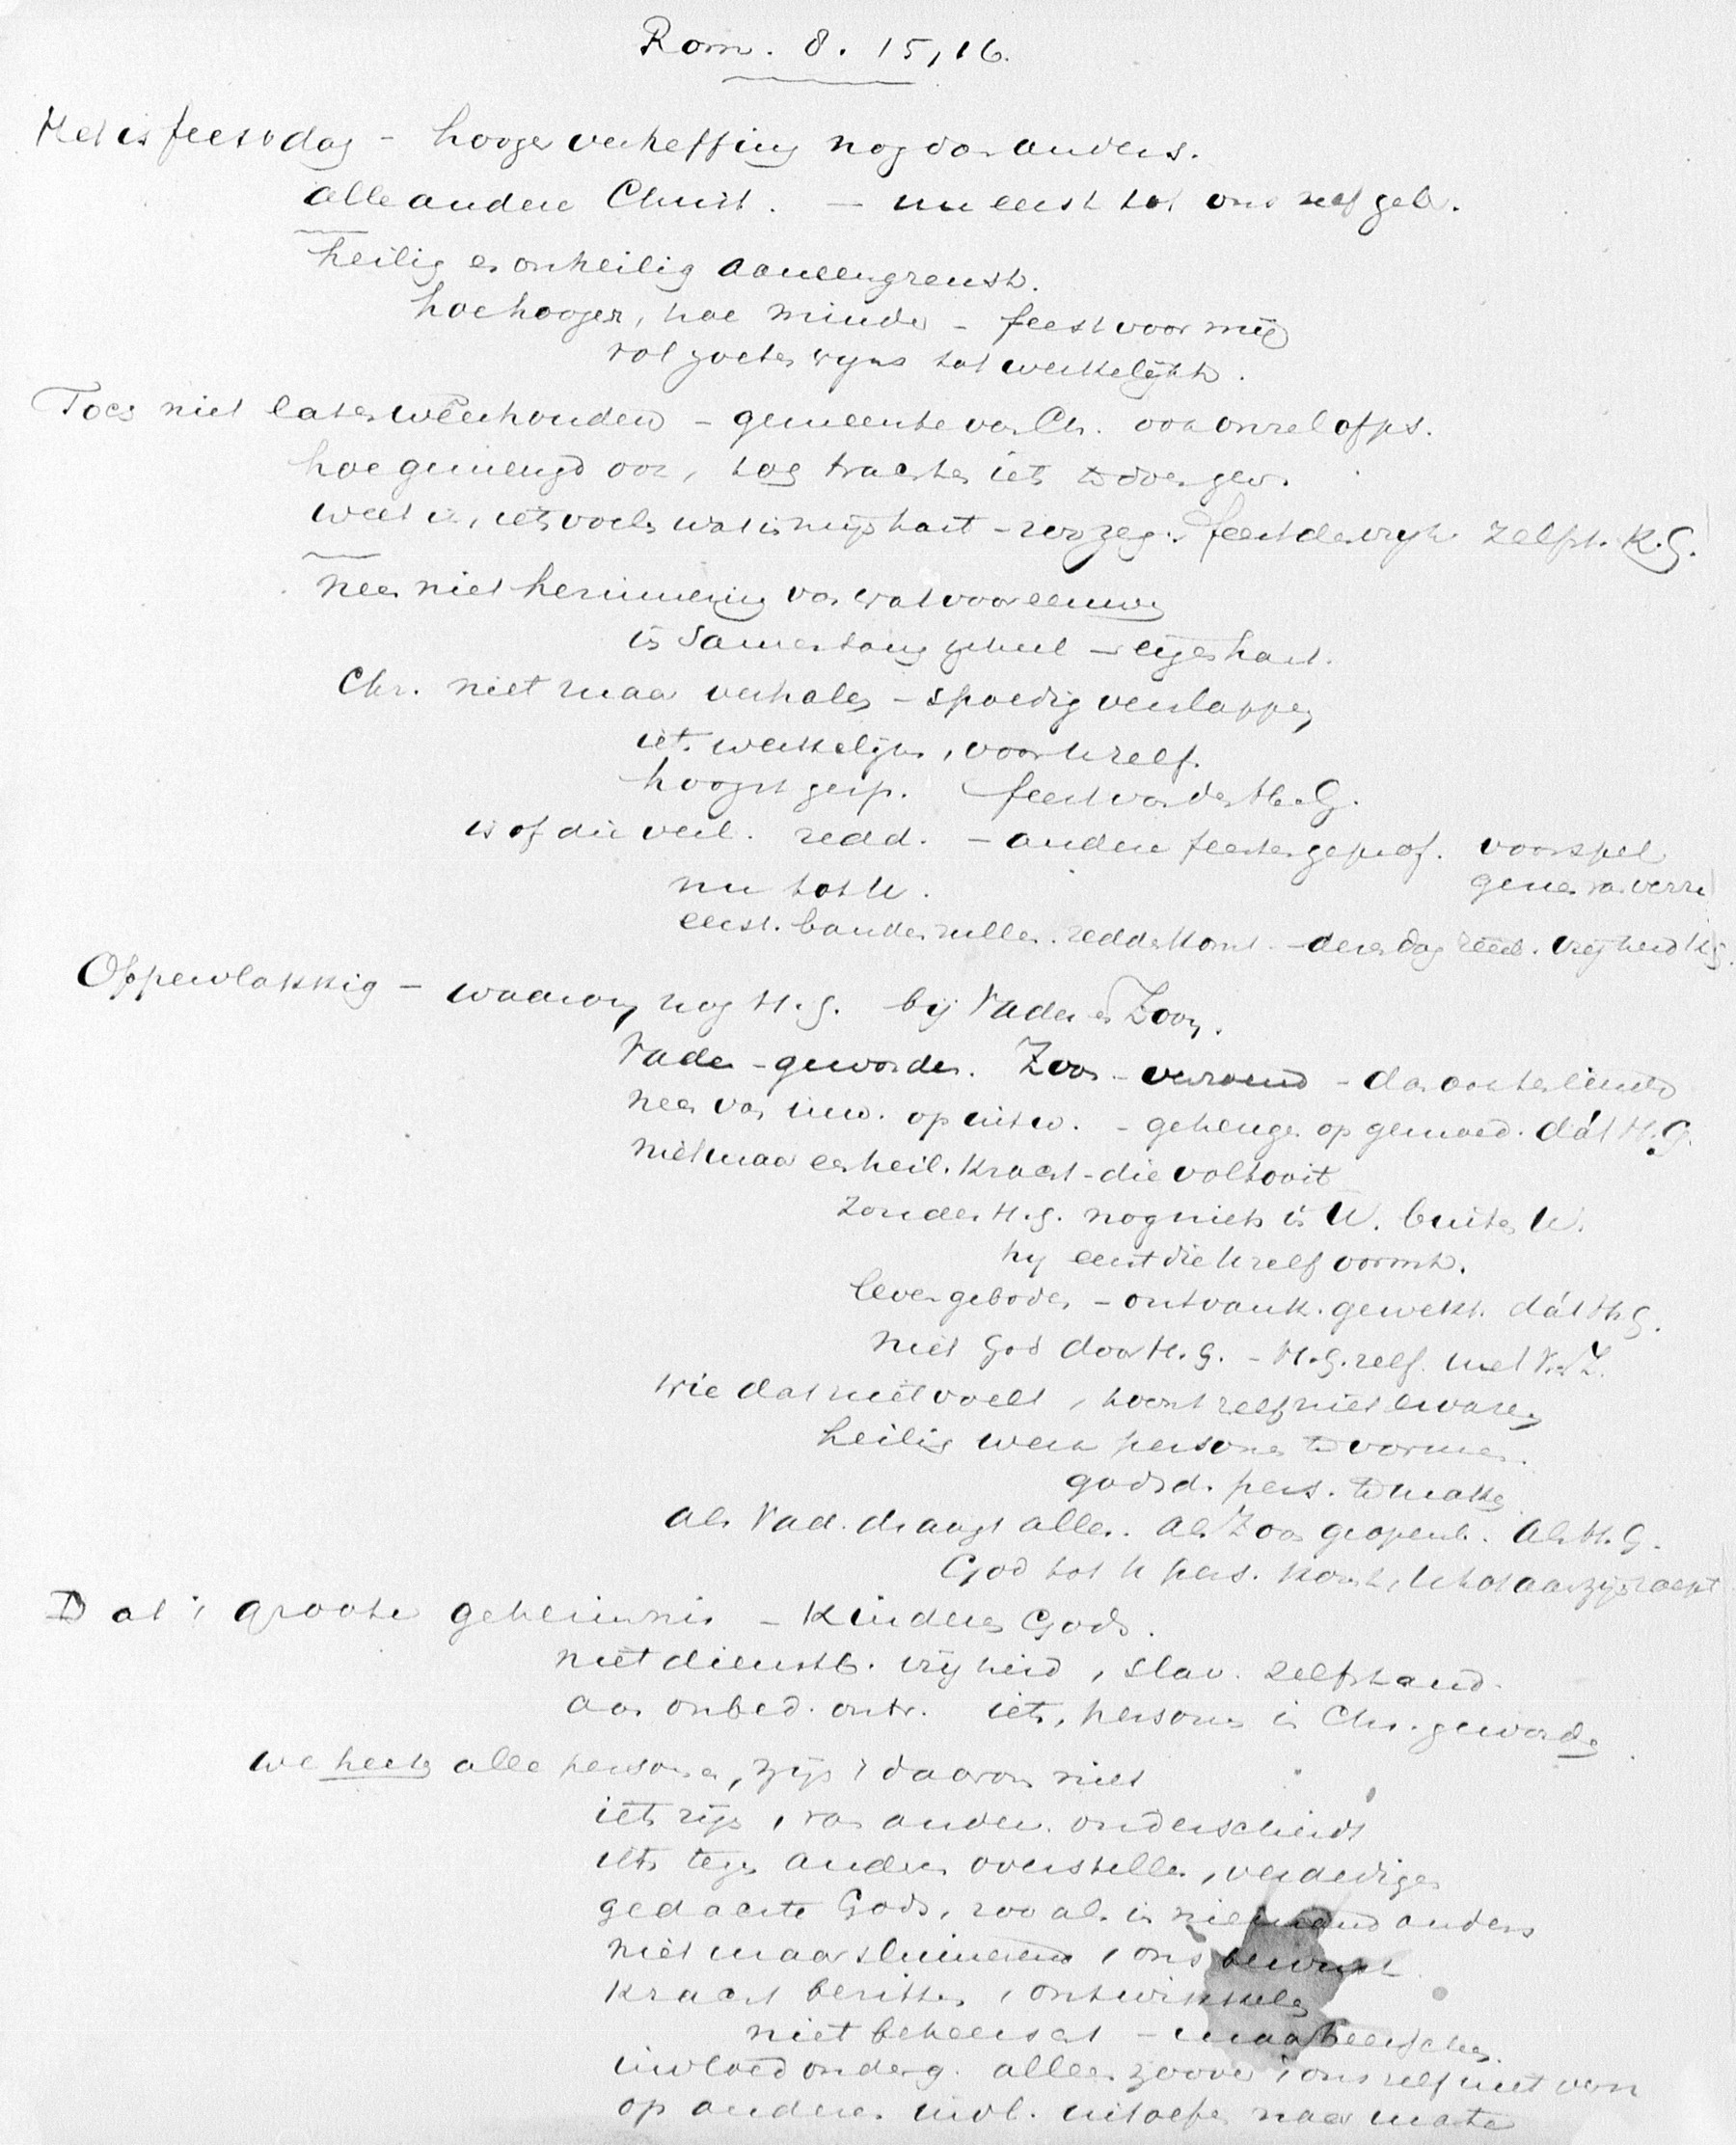 Rom. 8. 15, 16.
Het is feestdag - hooger verheffing nog dan anders.
alle andere Christ. - nu eerst tot ons zelf geb.
heilig en onheilig aaneengrenst.
hoe hooger, hoe minder - feest voor mij
tot werkelijkh.
Toch niet laten weerhouden - gemeente van Chr. ook onzel of ps.
hoe gemengd ook, tog trachten iets te doen gev.
weet u, iets voele wat in mijn hart - zoo zeg. feest der vrijh. zelfst. K.G.
neen niet herinnering van wat voor eeuwen
is samenhang geheel - eigen hart.
Chr. niet maar verhalen - spoedig verslappen
iets werkelijks, voor U zelf.
hoogst gesp. feest van den H.G.
is of die verl. redd. - andere feesten geprof. voorspel
nu tot U.
eerst. banden vullen. redder komt - deze dag vrijheid kg.
Oppervlakkig - waarom nog H.G. bij Vader en Zoon.
Vader - geworden. Zoon - verzoend - dan ook ten einde
neen van inw. op uitw. - gemoed. dát H.G.
niet maar een heil. kracht - die voltooit
Zonder H.G. nog niets in U. buiten U.
hij eerst die U zelf vormt.
leven geboden - ontvank. gewekt. dát H.G.
niet God door H.G. - H.G. zelf. met V. Z.
wie dat niet voelt, toont zelf niet ervaren
heilig werk personen te vormen.
godsd. pers. te maken
Als Vad. draagt alles. Als Zoon geopenb. Als H.G.
God tot U pers. komt, U tot aanzijn roept
Dat 's groote geheimnis - Kinderen Gods.
niet dienstb. vrijheid, slav. zelfstand.
aan onbed. ontr. iets, persoon in Chr. geworden
we heeten alle personen, zijn 't daarom niet
iets zijn, van anderen onderscheidt
iets tegen anderen overstellen, verdedigen
gedachte Gods, zooals in niemand anders
niet maar sluimerend, ons bewust
kracht bezitten, ontwikkelen
niet beheerscht - maar beheerschen.
invloed onderg. alleen zoover 't ons zelf niet
op anderen invl. uitoefen naar mate